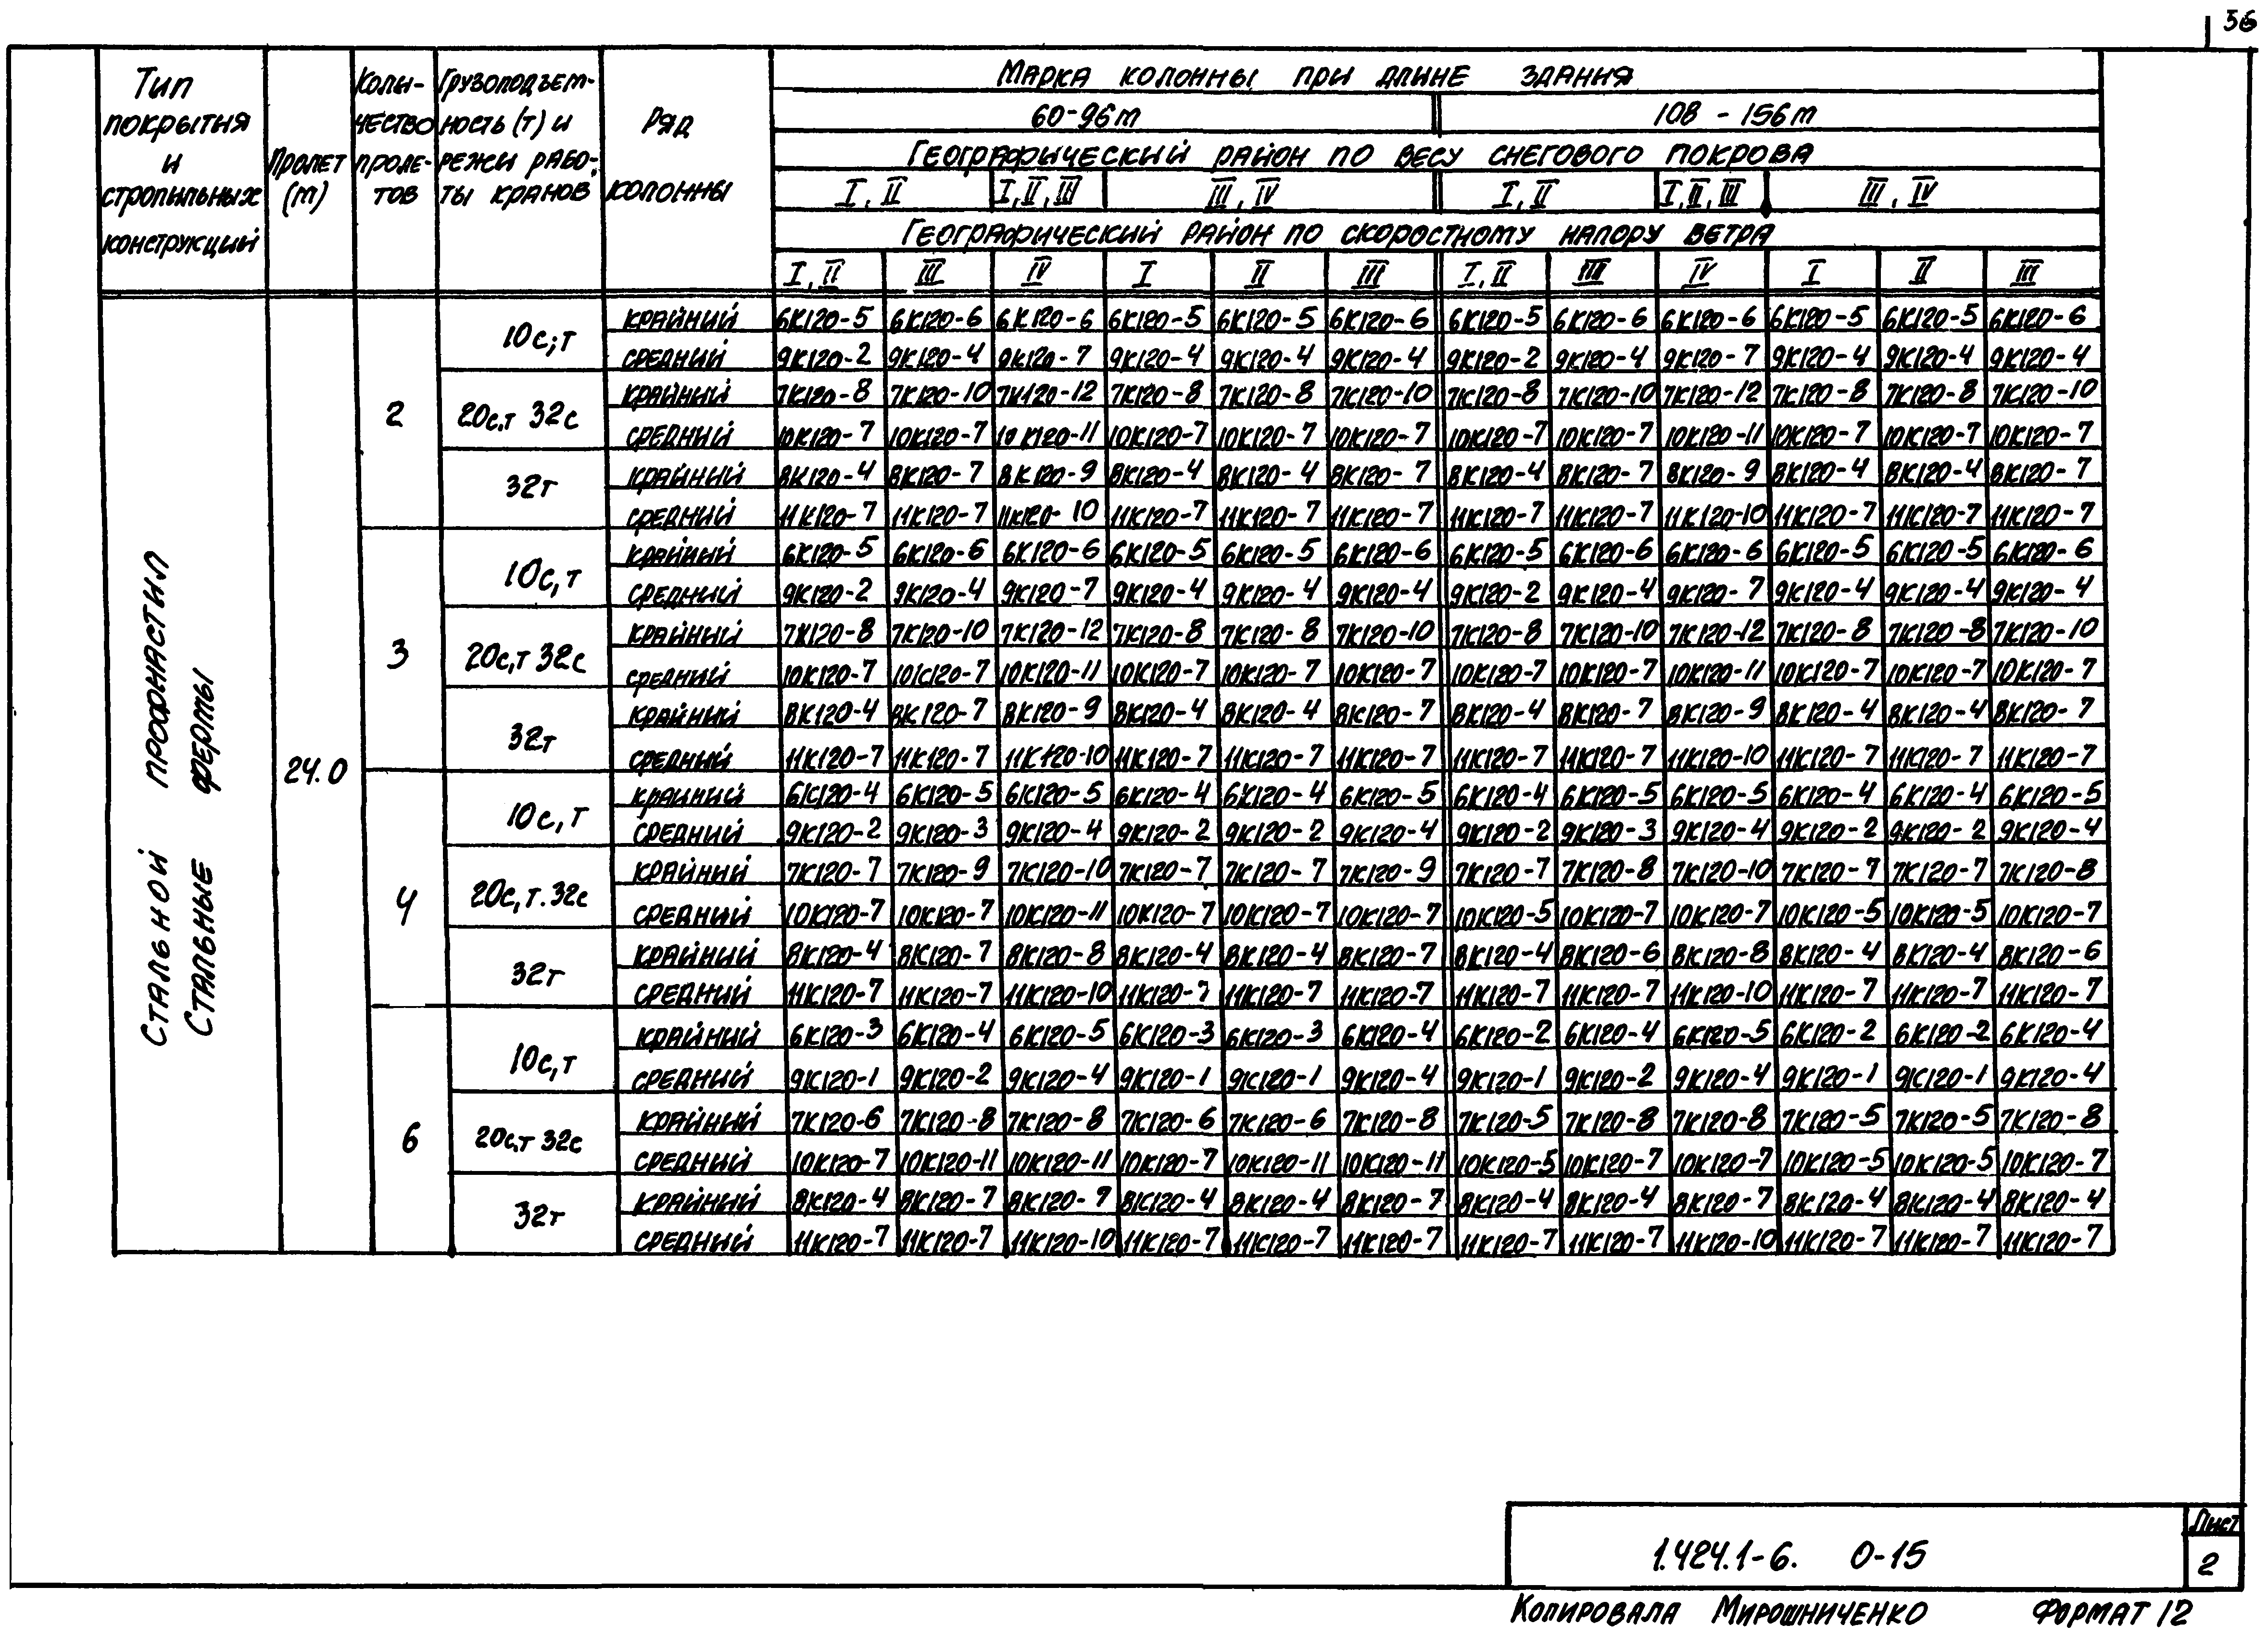 56
Тип покрытия и стропильных конструкций
Пролет (m)
Коли-чество проле-тов
Грузоподъем-ность (т) и режи рабо-ты кранов
Ряд колонны
Марка колонны при длине здания
60-96m 108 - 156m
Географический район по весу снегового покрова
I, II I, II, III III, IV I, II I, II, III III, IV
Географический район по скоростному напору ветра
I, II III IV I II III I, II III IV I II III
Стальной профнастил
Стальные фермы
24.0
2
10с;т
крайний 6К120-5 6К120-6 6К120-6 6К120-5 6К120-5 6К120-6 6К120-5 6К120-6 6К120-6 6К120-5 6К120-5 6К120-6
средний 9К120-2 9К120-4 9К120-7 9К120-4 9К120-4 9К120-4 9К120-2 9К120-4 9К120-7 9К120-4 9К120-4 9К120-4
20с,т 32с
крайний 7К120-8 7К120-10 7К120-12 7К120-8 7К120-8 7К120-10 7К120-8 7К120-10 7К120-12 7К120-8 7К120-8 7К120-10
средний 10К120-7 10К120-7 10К120-11 10К120-7 10К120-7 10К120-7 10К120-7 10К120-7 10К120-11 10К120-7 10К120-7 10К120-7
32т
крайний 8К120-4 8К120-7 8К120-9 8К120-4 8К120-4 8К120-7 8К120-4 8К120-7 8К120-9 8К120-4 8К120-4 8К120-7
средний 11К120-7 11К120-7 11К120-10 11К120-7 11К120-7 11К120-7 11К120-7 11К120-7 11К120-10 11К120-7 11К120-7 11К120-7
3
10с,т
крайний 6К120-5 6К120-6 6К120-6 6К120-5 6К120-5 6К120-6 6К120-5 6К120-6 6К120-6 6К120-5 6К120-5 6К120-6
средний 9К120-2 9К120-4 9К120-7 9К120-4 9К120-4 9К120-4 9К120-2 9К120-4 9К120-7 9К120-4 9К120-4 9К120-4
20с,т 32с
крайний 7К120-8 7К120-10 7К120-12 7К120-8 7К120-8 7К120-10 7К120-8 7К120-10 7К120-12 7К120-8 7К120-8 7К120-10
средний 10К120-7 10К120-7 10К120-11 10К120-7 10К120-7 10К120-7 10К120-7 10К120-7 10К120-11 10К120-7 10К120-7 10К120-7
32т
крайний 8К120-4 8К120-7 8К120-9 8К120-4 8К120-4 8К120-7 8К120-4 8К120-7 8К120-9 8К120-4 8К120-4 8К120-7
средний 11К120-7 11К120-7 11К120-10 11К120-7 11К120-7 11К120-7 11К120-7 11К120-7 11К120-10 11К120-7 11К120-7 11К120-7
4
10с,т
крайний 6К120-4 6К120-5 6К120-5 6К120-4 6К120-4 6К120-5 6К120-4 6К120-5 6К120-5 6К120-4 6К120-4 6К120-5
средний 9К120-2 9К120-3 9К120-4 9К120-2 9К120-2 9К120-4 9К120-2 9К120-3 9К120-4 9К120-2 9К120-2 9К120-4
20с,т.32с
крайний 7К120-7 7К120-9 7К120-10 7К120-7 7К120-7 7К120-9 7К120-7 7К120-8 7К120-10 7К120-7 7К120-7 7К120-8
средний 10К120-7 10К120-7 10К120-11 10К120-7 10К120-7 10К120-7 10К120-5 10К120-7 10К120-7 10К120-5 10К120-5 10К120-7
32т
крайний 8К120-4 8К120-7 8К120-8 8К120-4 8К120-4 8К120-7 8К120-4 8К120-6 8К120-8 8К120-4 8К120-4 8К120-6
средний 11К120-7 11К120-7 11К120-10 11К120-7 11К120-7 11К120-7 11К120-7 11К120-7 11К120-10 11К120-7 11К120-7 11К120-7
6
10с,т
крайний 6К120-3 6К120-4 6К120-5 6К120-3 6К120-3 6К120-4 6К120-2 6К120-4 6К120-5 6К120-2 6К120-2 6К120-4
средний 9К120-1 9К120-2 9К120-4 9К120-1 9К120-1 9К120-4 9К120-1 9К120-2 9К120-4 9К120-1 9К120-1 9К120-4
20с,т 32с
крайний 7К120-6 7К120-8 7К120-8 7К120-6 7К120-6 7К120-8 7К120-5 7К120-8 7К120-8 7К120-5 7К120-5 7К120-8
средний 10К120-7 10К120-11 10К120-11 10К120-7 10К120-11 10К120-11 10К120-5 10К120-7 10К120-7 10К120-5 10К120-5 10К120-7
32т
крайний 8К120-4 8К120-7 8К120-7 8К120-4 8К120-4 8К120-7 8К120-4 8К120-4 8К120-7 8К120-4 8К120-4 8К120-4
средний 11К120-7 11К120-7 11К120-10 11К120-7 11К120-7 11К120-7 11К120-7 11К120-7 11К120-10 11К120-7 11К120-7 11К120-7
1.424.1-6. 0-15
Лист
2
Копировала Мирошниченко Формат 12